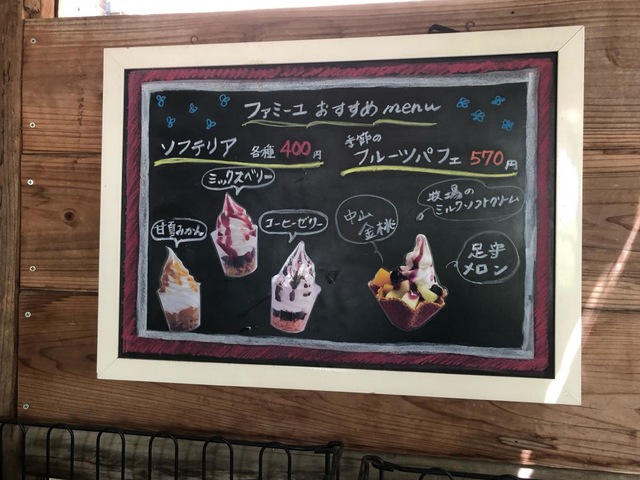 ファミーユ おすすめ menu
ソフテリア 各種 400円
ミックスベリー
甘夏みかん
コーヒーゼリー
季節の
フルーツパフェ 570円
牧場の
ミルクソフトクリーム
中山
金桃
足守
メロン